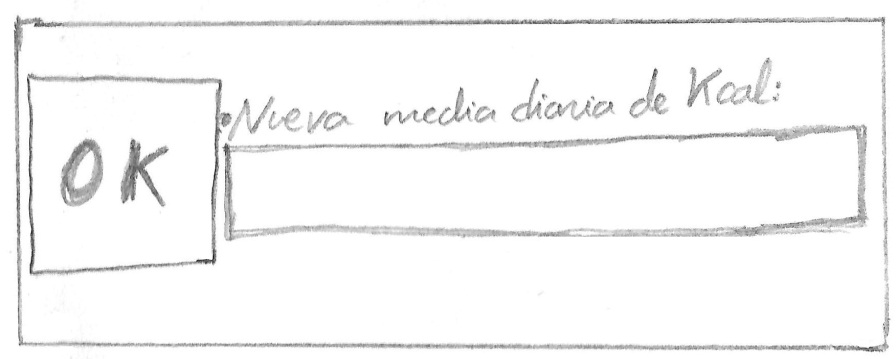 •Nueva media diaria de Kcal:
OK